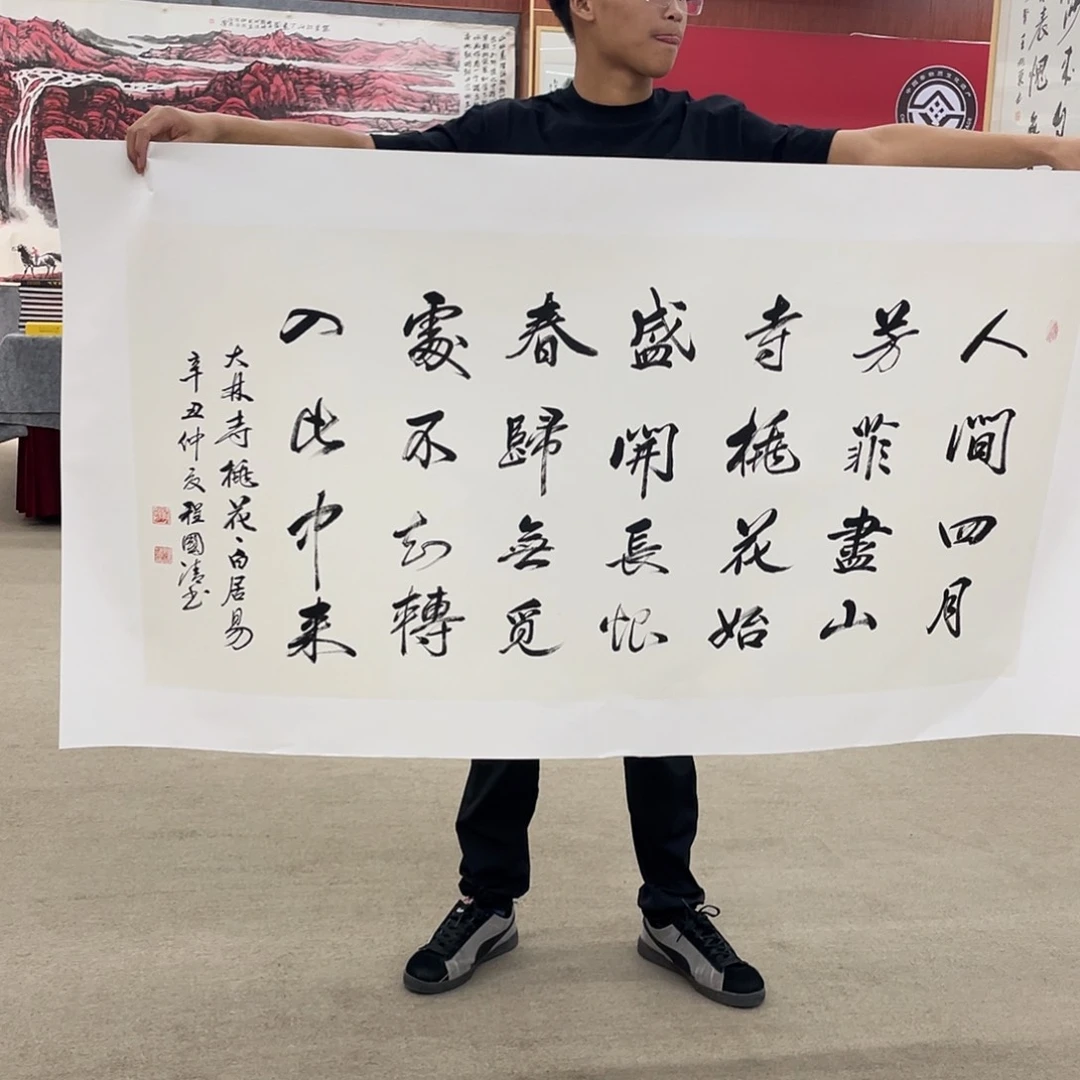 人間四月
芳菲盡山
寺桃花始
盛開長恨
春歸無覓
處不知轉
入此中来
大林寺桃花、白居易
辛丑仲夏程國清书